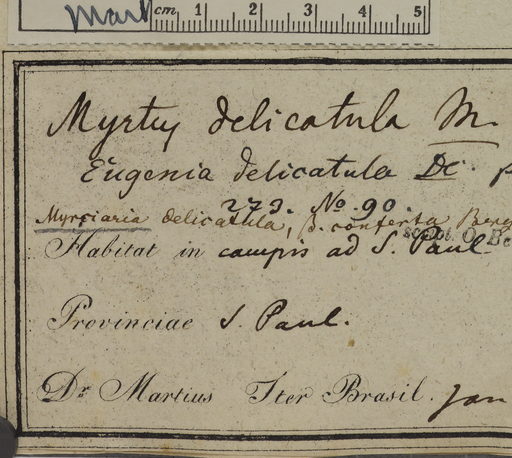 Mart
cm 1 2 3 4 5
Myrtus delicatula M.
Eugenia delicatula DC. p
223. No. 90.
Myrciaria delicatula, β. conferta Berg
scripsit O. Be
Habitat in campis ad S. Paul
Provinciae S. Paul.
Dr Martius Iter Brasil. Jan